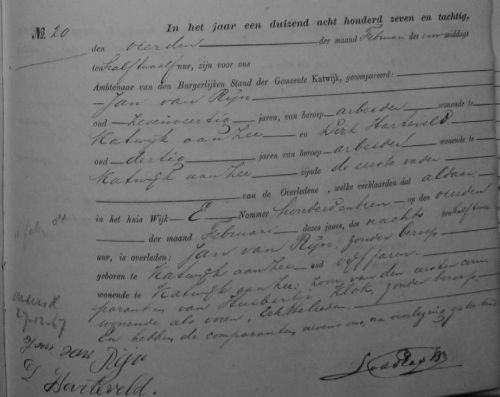 № 20
In het jaar een duizend acht honderd zeven en tachtig,
den vierden der maand Februari des voormiddags
ten half twaalf uur, zijn voor ons
Ambtenaar van den Burgerlijken Stand der Gemeente Katwijk, gecompareerd:
Jan van Rijn
oud zevenveertig jaren, van beroep arbeider wonende te
Katwijk aan Zee en Dirk Harteveld
oud dertig jaren van beroep arbeider wonende te
Katwijk aan Zee zijnde de eerste vader
van de Overledene, welke verklaarden dat aldaar
in het huis Wijk E Nommer honderdentien op den vierden
der maand Februari dezes jaars, des nachts ten half twee
uur, is overleden: Jan van Rijn, zonder beroep
geboren te Katwijk aan Zee oud vijf jaren.
wonende te Katwijk aan Zee; zoon van den eersten com
parant en van Huibertje Klok, zonder beroep
wonende als voren, Echtelieden.
En hebben de comparanten nevens ons, na voorlezing geteekend
27-12-67
Jan van Rijn
D Harteveld.